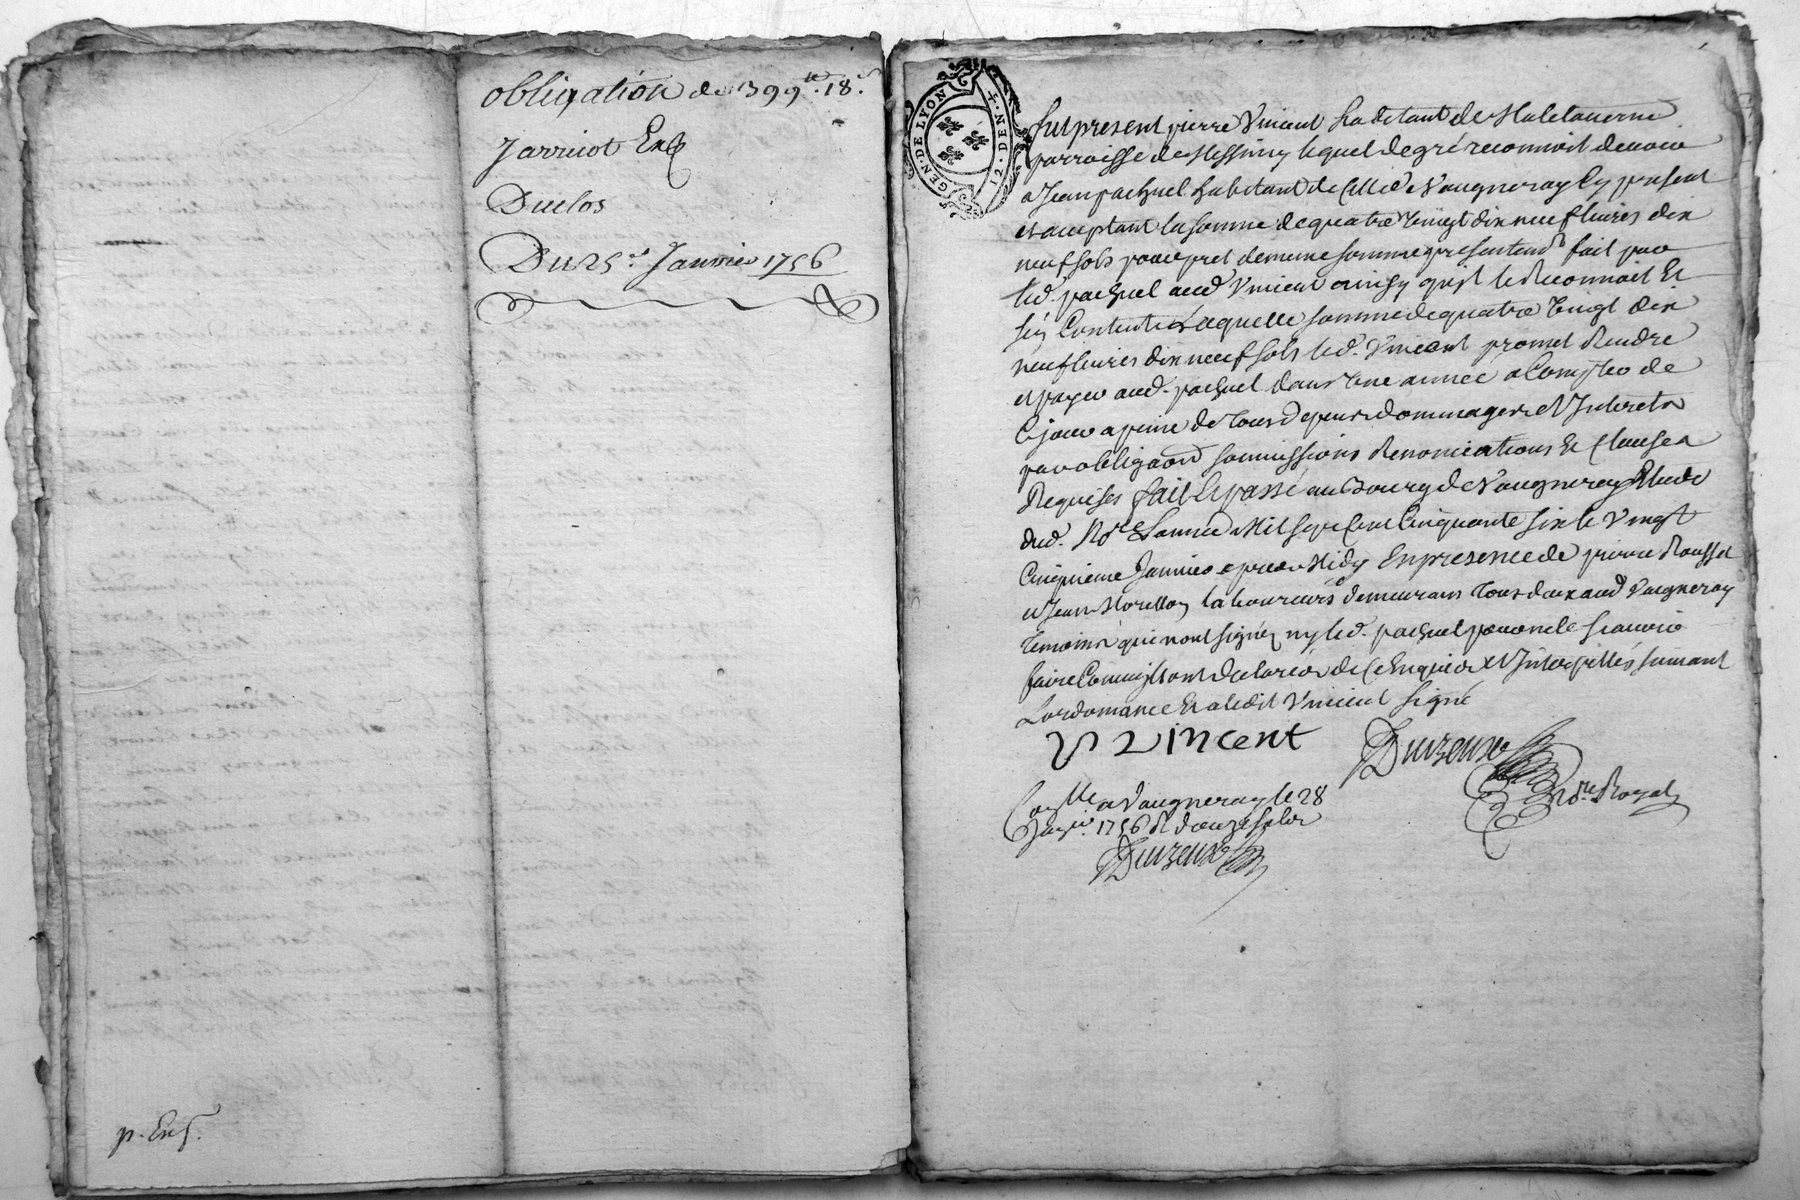 obligation de 399lt. 18s.
Jarricot Ex
Duclos
Du 25e. Janvier 1756
p. Ex
GEN. DE LYON
12. DEN.
fut present pierre Vincent habitant de Maletaverne
parroisse de Messimy lequel de gré reconnoit devoir
a Jean pachuel habitant de Vaugneray Cy present
et acceptant la somme de quatre Vingt dix neuf livres dix
neuf sols pour pret de meme somme presentemt fait par
led. pachuel aud Vincent ainsy qu'il le Reconnoit Et
sen Contente Laquelle somme de quatre Vingt dix
neuf livres dix neuf sols led. Vincent promet Rendre
et payer aud. pachuel dans Une année a Compter de
Ce jour a peine de tous depens dommages et Interets
par obligaon soumissions Renonciations Et Clauses
Requises fait Et passé au Bourg de Vaugneray Etude
dud. Nore L'année Mil sept Cent Cinquante six le Vingt
Cinquieme Janvier apres Midy En presence de pierre Rousset
et Jean Morellon laboureurs demeurans tous deux aud Vaugneray
temoins qui n'ont signé ny led. pachuel pour ne le scavoir
faire Comme ils ont declaré de Ce Enquis et Interpellés suivant
L'ordonnance Et a ledit Vincent signé
Vincent Durzeux
Nore. Royal
Conlle a Vaugneray le 28
Janvier 1756 R douze sols
Durzeux